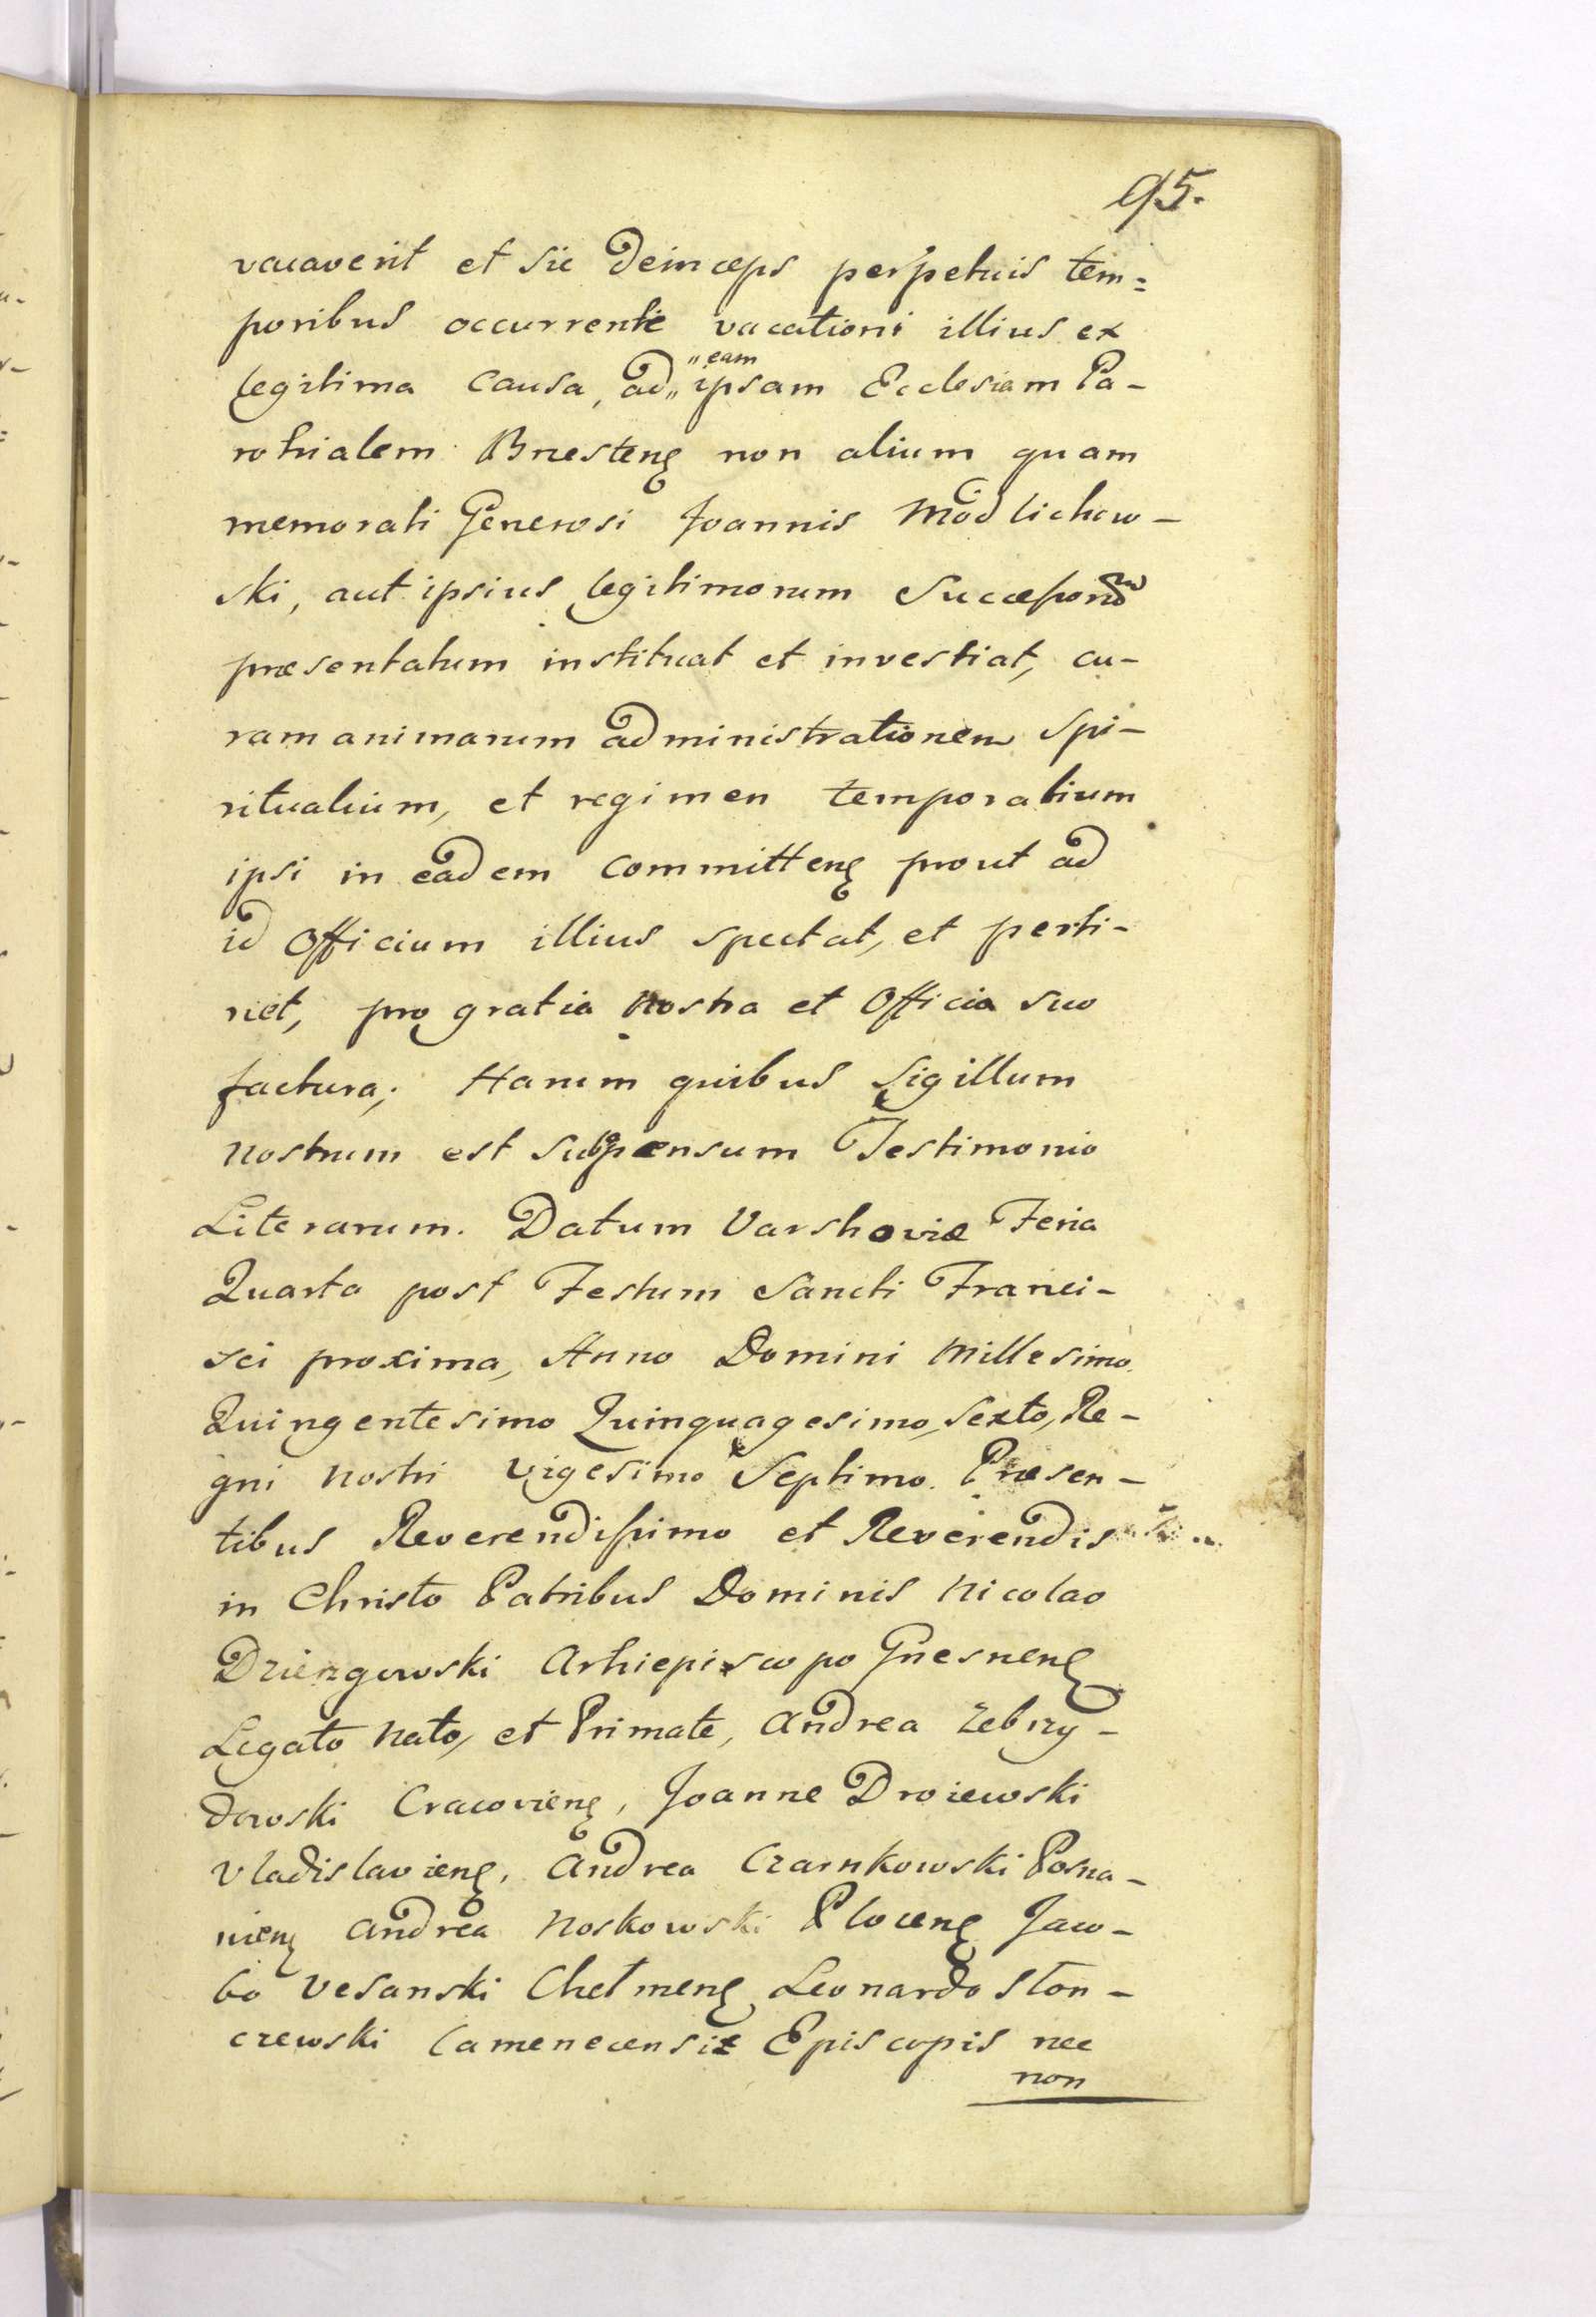 95.
vacaverit et sic deinceps perpetuis tem=
poribus occurrente vacationi illius ex
legitima causa, ad „eam„ ipsam Ecclesiam Pa-
rohialem Brzesteng non alium quam
memorati Generosi Joannis Modlichow-
ski, aut ipsius legitimorum Successorum
præsentatum instituat et investiat, cu-
ram animarum administrationem Spi-
ritualium, et regimen temporalium
ipsi in eadem committens prout ad
id Officium illius spectat, et perti-
net, pro gratia nostra et Officia suo
factura; Harum quibus Sigillum
nostrum est subpensum Testimonio
Literarum. Datum Varshoviæ Feria
Quarta post Festum Sancti Franci-
sci proxima, Anno Domini Millesimo
Quingentesimo Quinquagesimo, Sexto, Re-
gni nostri vigesimo Septimo. Præsen-
tibus Reverendissimo et Reverendis
in Christo Patribus Dominis Nicolao
Dzierzgowski Arhiepiscopo Gnesnens
Legato Nato, et Primate, Andrea Zebrzy-
dowski Cracoviens, Joanne Droiewski
Vladislaviens, Andrea Czarnkowski Posna-
niens Andrea Noskowski Plocens Jaco-
bo Vesanski Chelmens Leonardo Slon-
czewski Camenecensis Episcopis nec
non